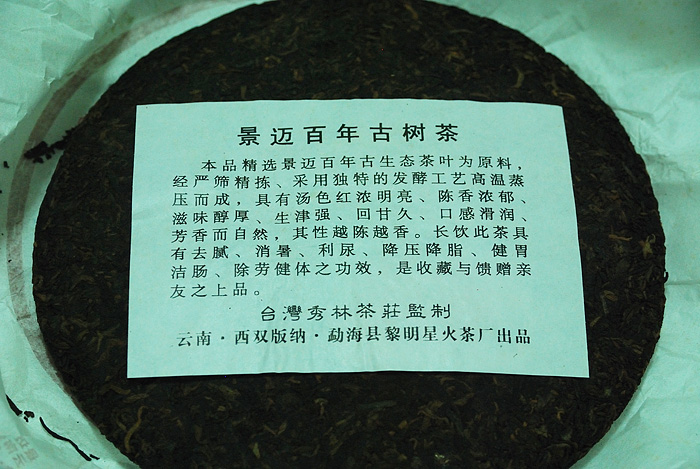 景迈百年古树茶
本品精选景迈百年古生态茶叶为原料，
经严筛精拣、采用独特的发酵工艺高温蒸
压而成，具有汤色红浓明亮、陈香浓郁、
滋味醇厚、生津强、回甘久、口感滑润、
芳香而自然，其性越陈越香。长饮此茶具
有去腻、消暑、利尿、降压降脂、健胃
洁肠、除劳健体之功效，是收藏与馈赠亲
友之上品。
台灣秀林茶莊監制
云南·西双版纳·勐海县黎明星火茶厂出品